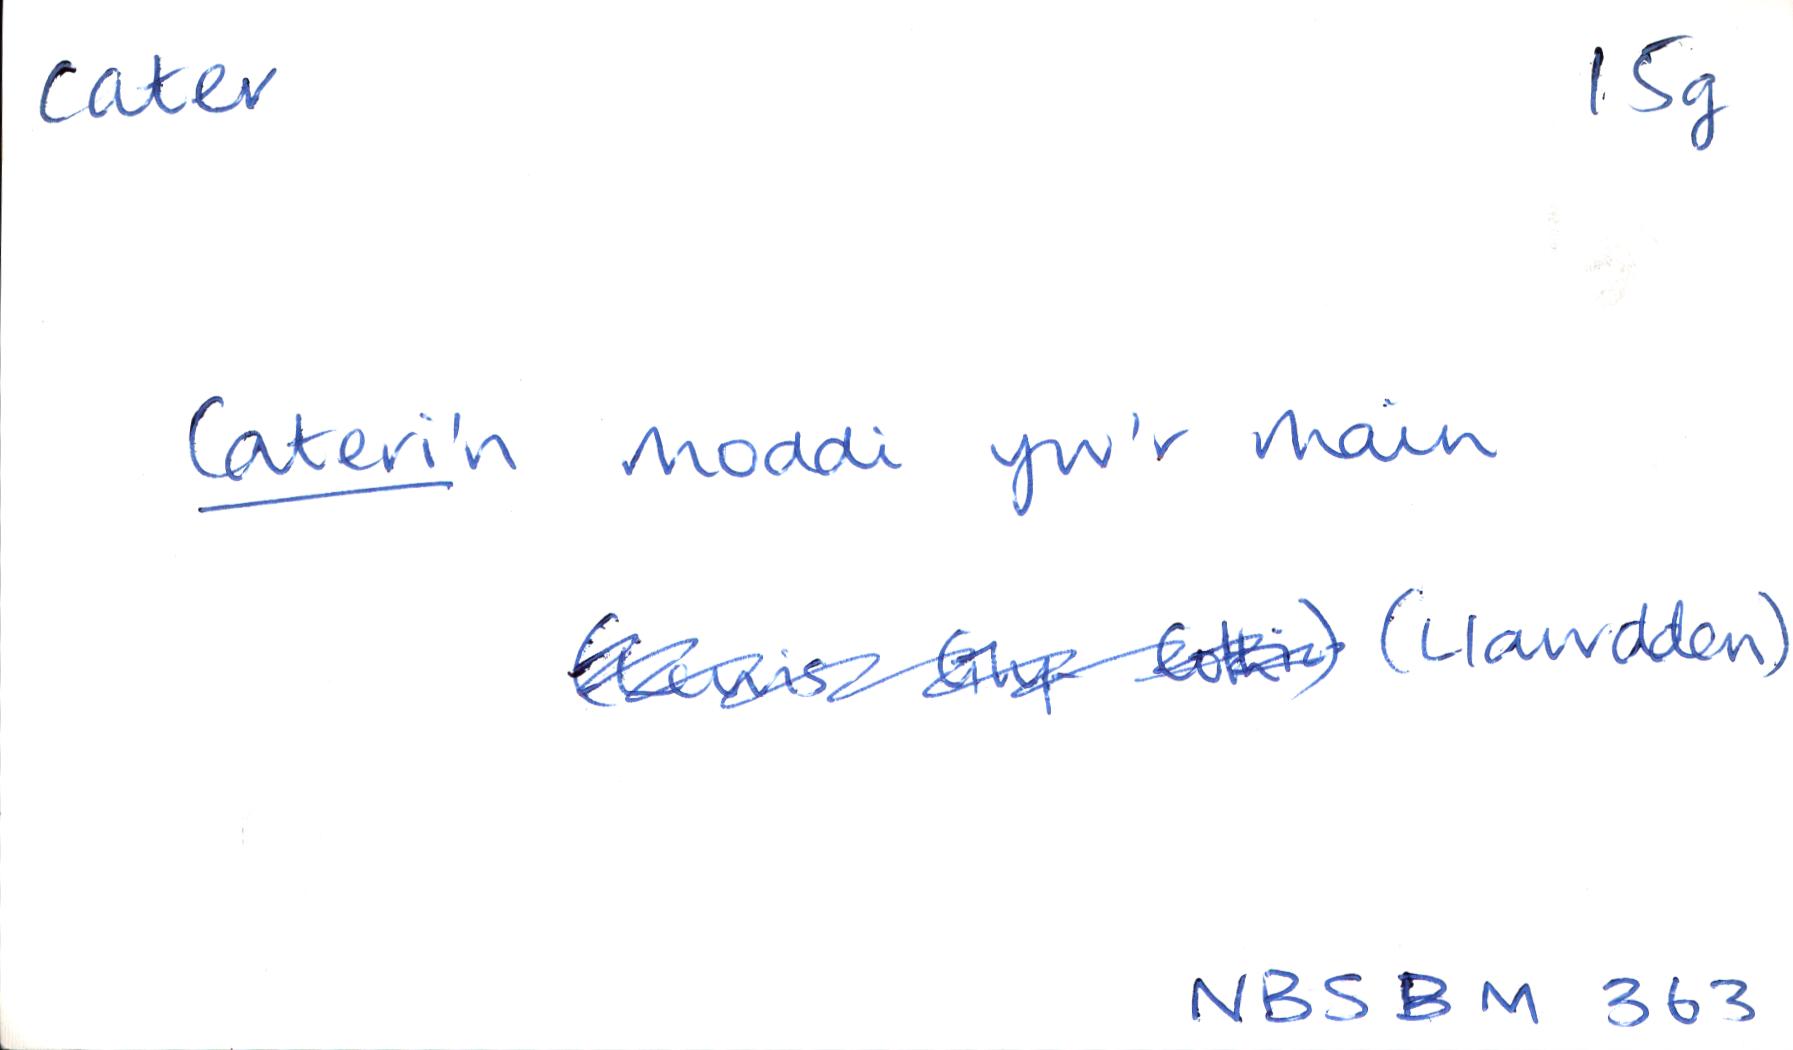 cater 15g
Cateri'n noddi yw'r main
(Llawdden)
NBSBM 363